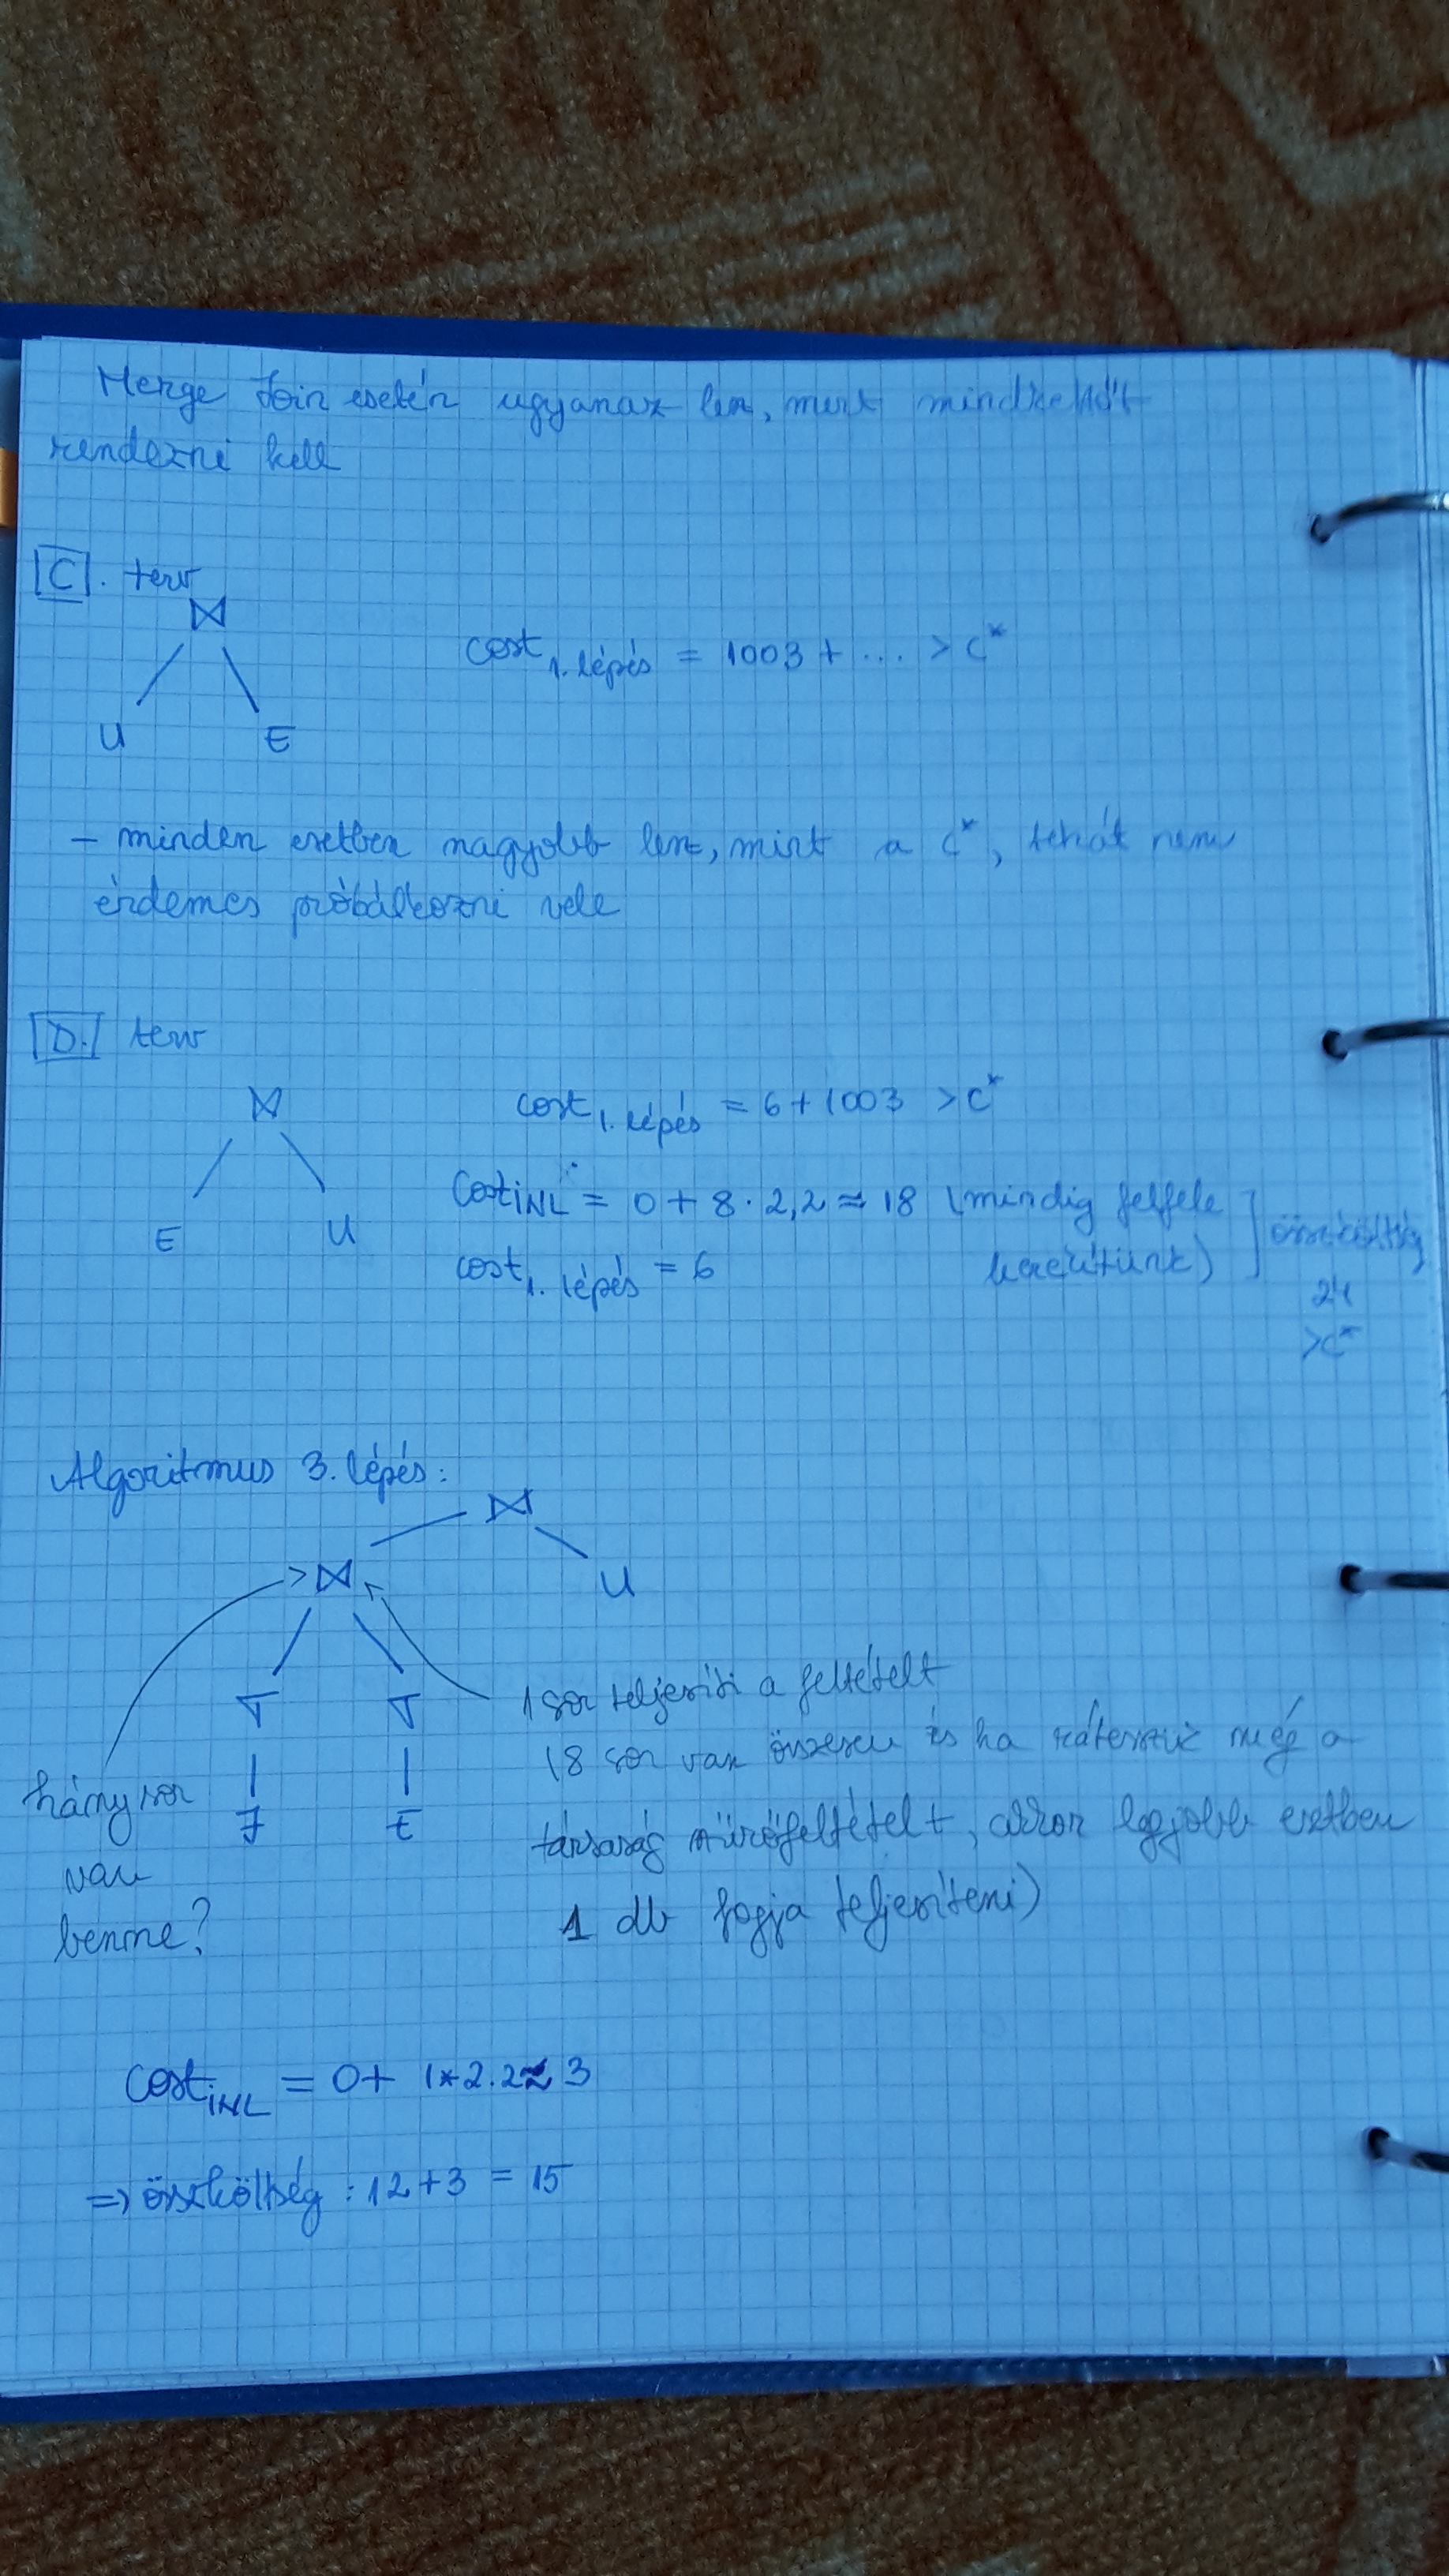 Merge Join esetén ugyanaz lesz, mert mindkettőt
rendezni kell
C. terv
⋈
U E
cost 1. lépés = 1003 + ... > C*
- minden esetben nagyobb lesz, mint a C*, tehát nem
érdemes próbálkozni vele
D. terv
⋈
E U
cost 1. lépés = 6 + 1003 > C*
Cost INL = 0 + 8 · 2,2 ≈ 18 (mindig felfele
kerekítünk)
cost 1. lépés = 6
összköltség
24
> C*
Algoritmus 3. lépés:
⋈
⋈ U
hány sor
van
benne?
J E
1 sor teljesíti a feltételt
(8 sor van összesen és ha ráteszük még a
társaság szűrőfeltételt, akkor legjobb esetben
1 db fogja teljesíteni)
Cost INL = 0 + 1*2.2 ≈ 3
=> összköltség : 12 + 3 = 15